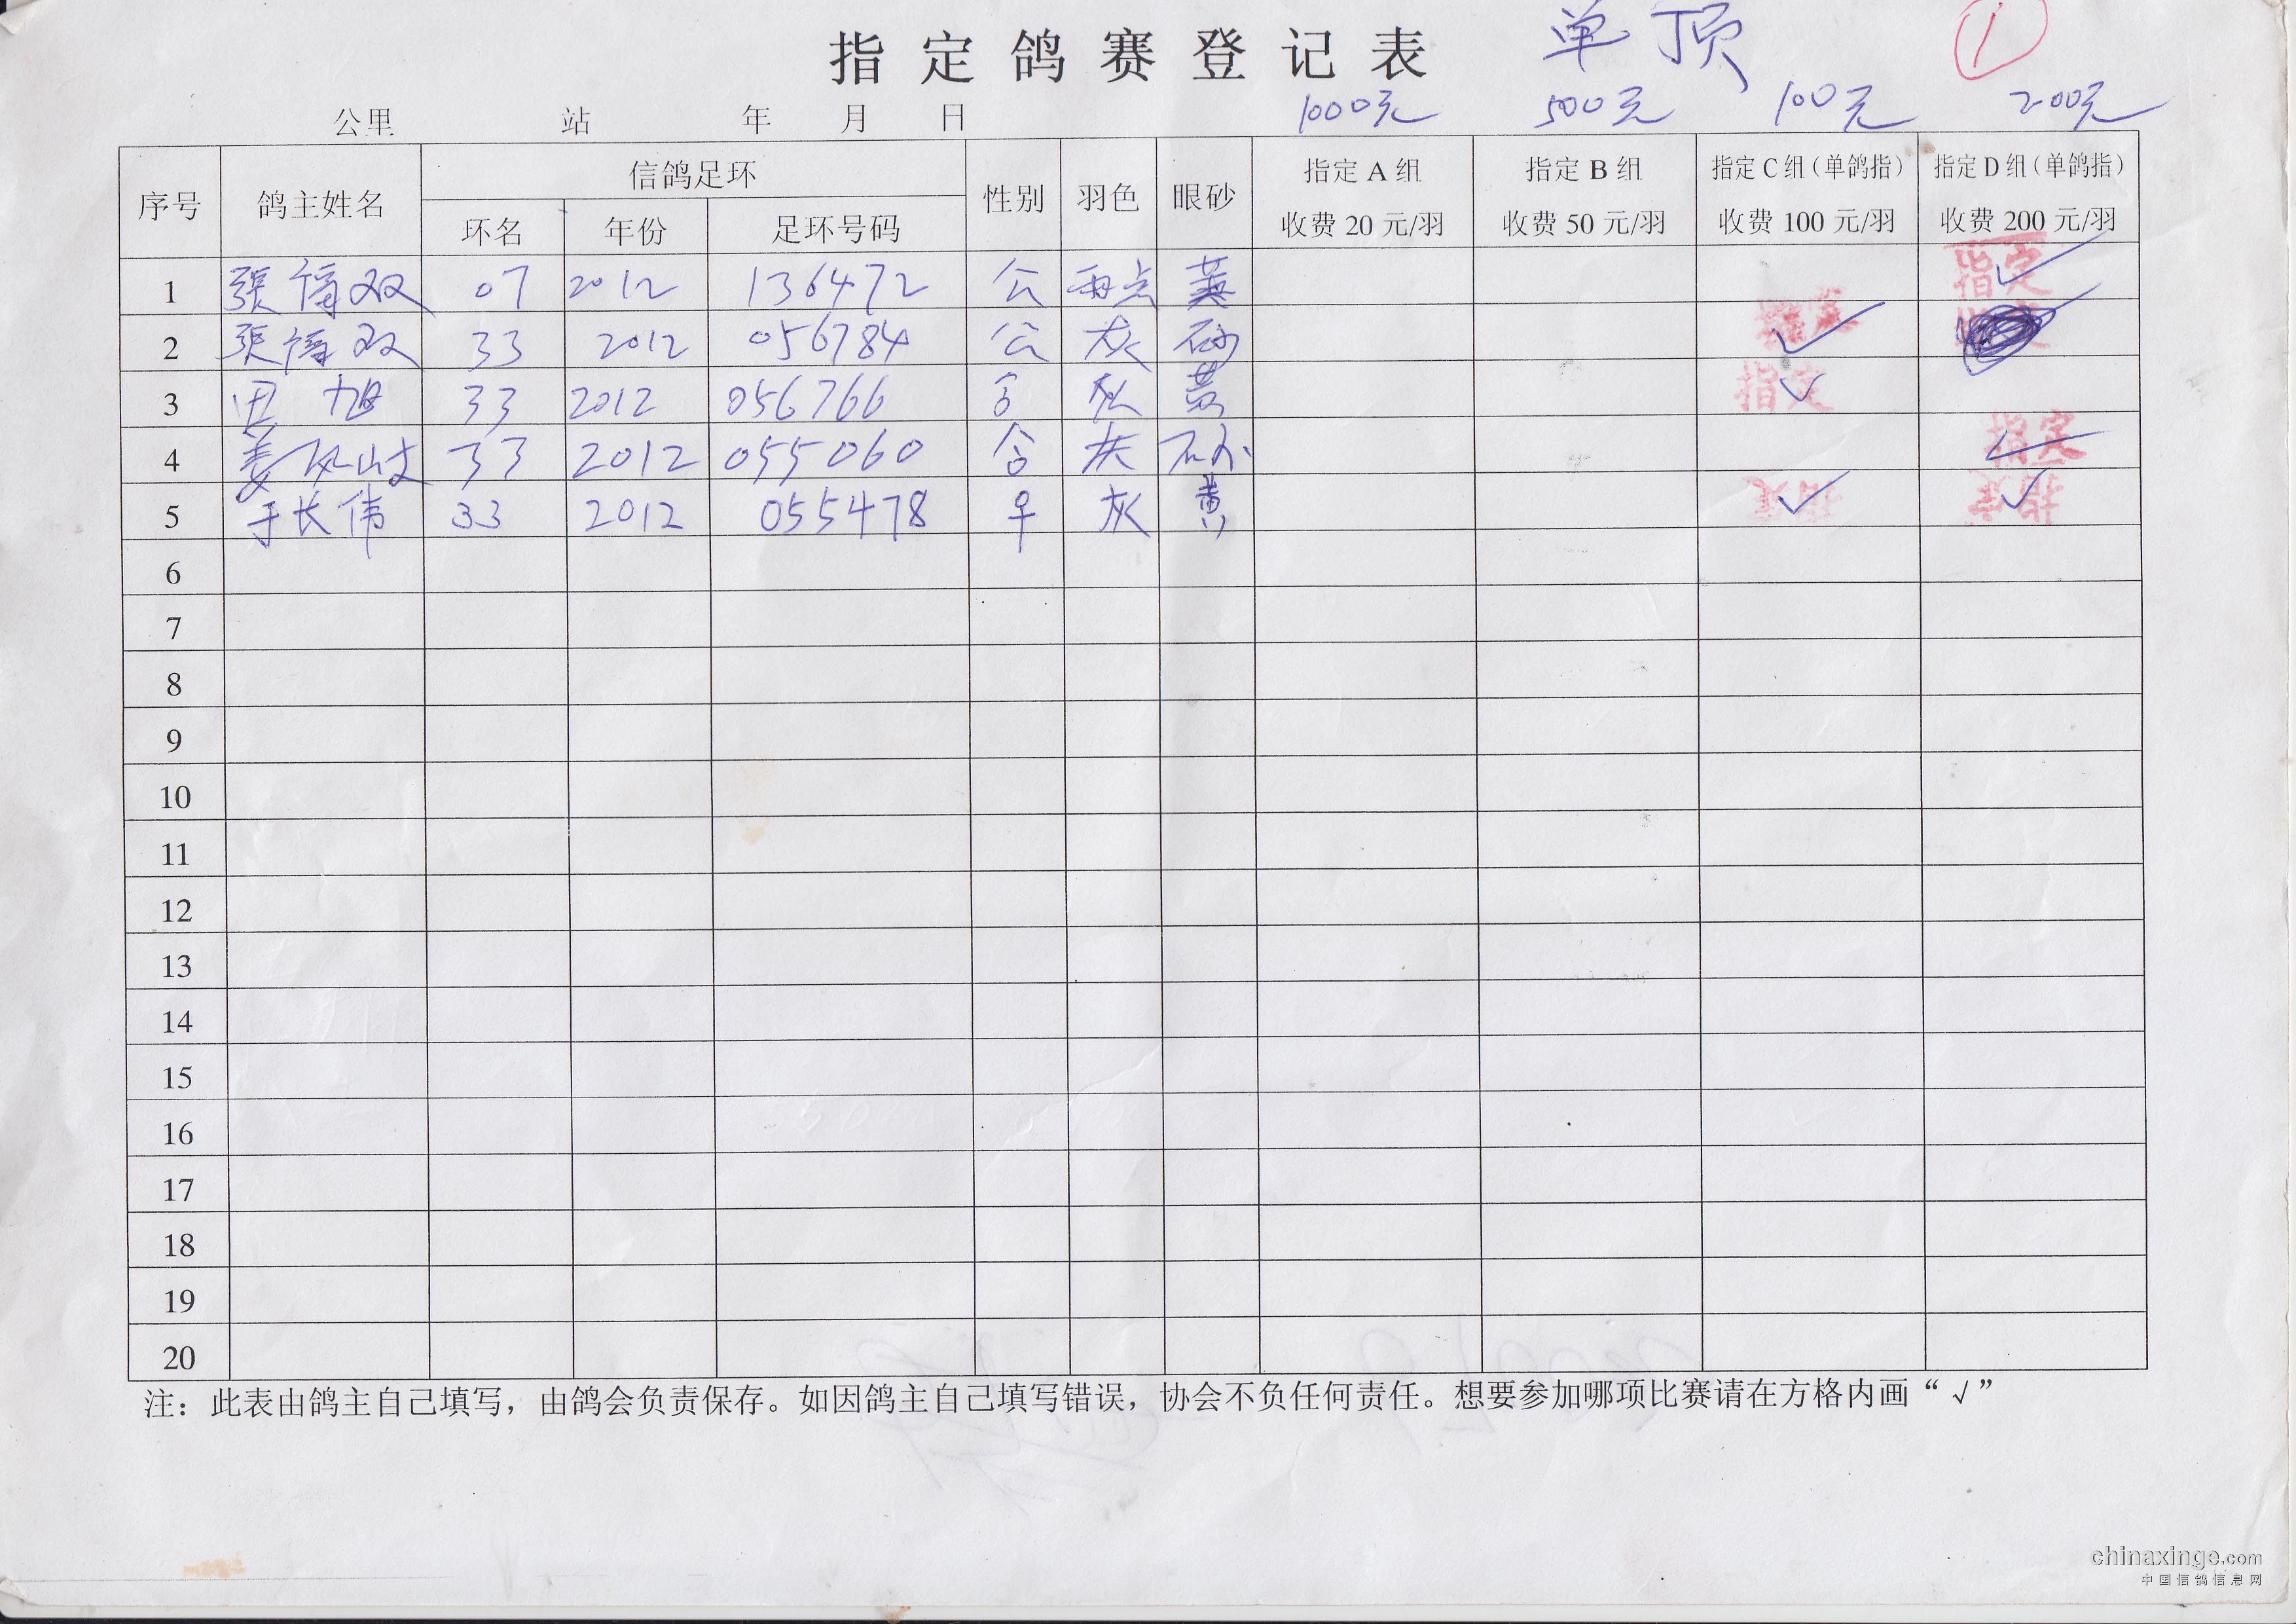 指定鸽赛登记表 单顶 1
公里 站 年 月 日 1000元 500元 100元 200元
序号 鸽主姓名 信鸽足环 性别 羽色 眼砂 指定A组 指定B组 指定C组(单鸽指) 指定D组(单鸽指)
环名 年份 足环号码 收费20元/羽 收费50元/羽 收费100元/羽 收费200元/羽
1 張 双 07 2012 136472 公 雨点 黄 指定 ✓
2 張 双 33 2012 056784 公 灰 砂 指定 ✓
3 田旭 33 2012 056766 灰 黄 指定 ✓
4 姜 33 2012 055060 灰 砂 指定 ✓
5 于长伟 33 2012 055478 灰 黄 指定 ✓ 指定 ✓
6
7
8
9
10
11
12
13
14
15
16
17
18
19
20
注：此表由鸽主自己填写，由鸽会负责保存。如因鸽主自己填写错误，协会不负任何责任。想要参加哪项比赛请在方格内画“√”
chinaxinge.com
中国信鸽信息网